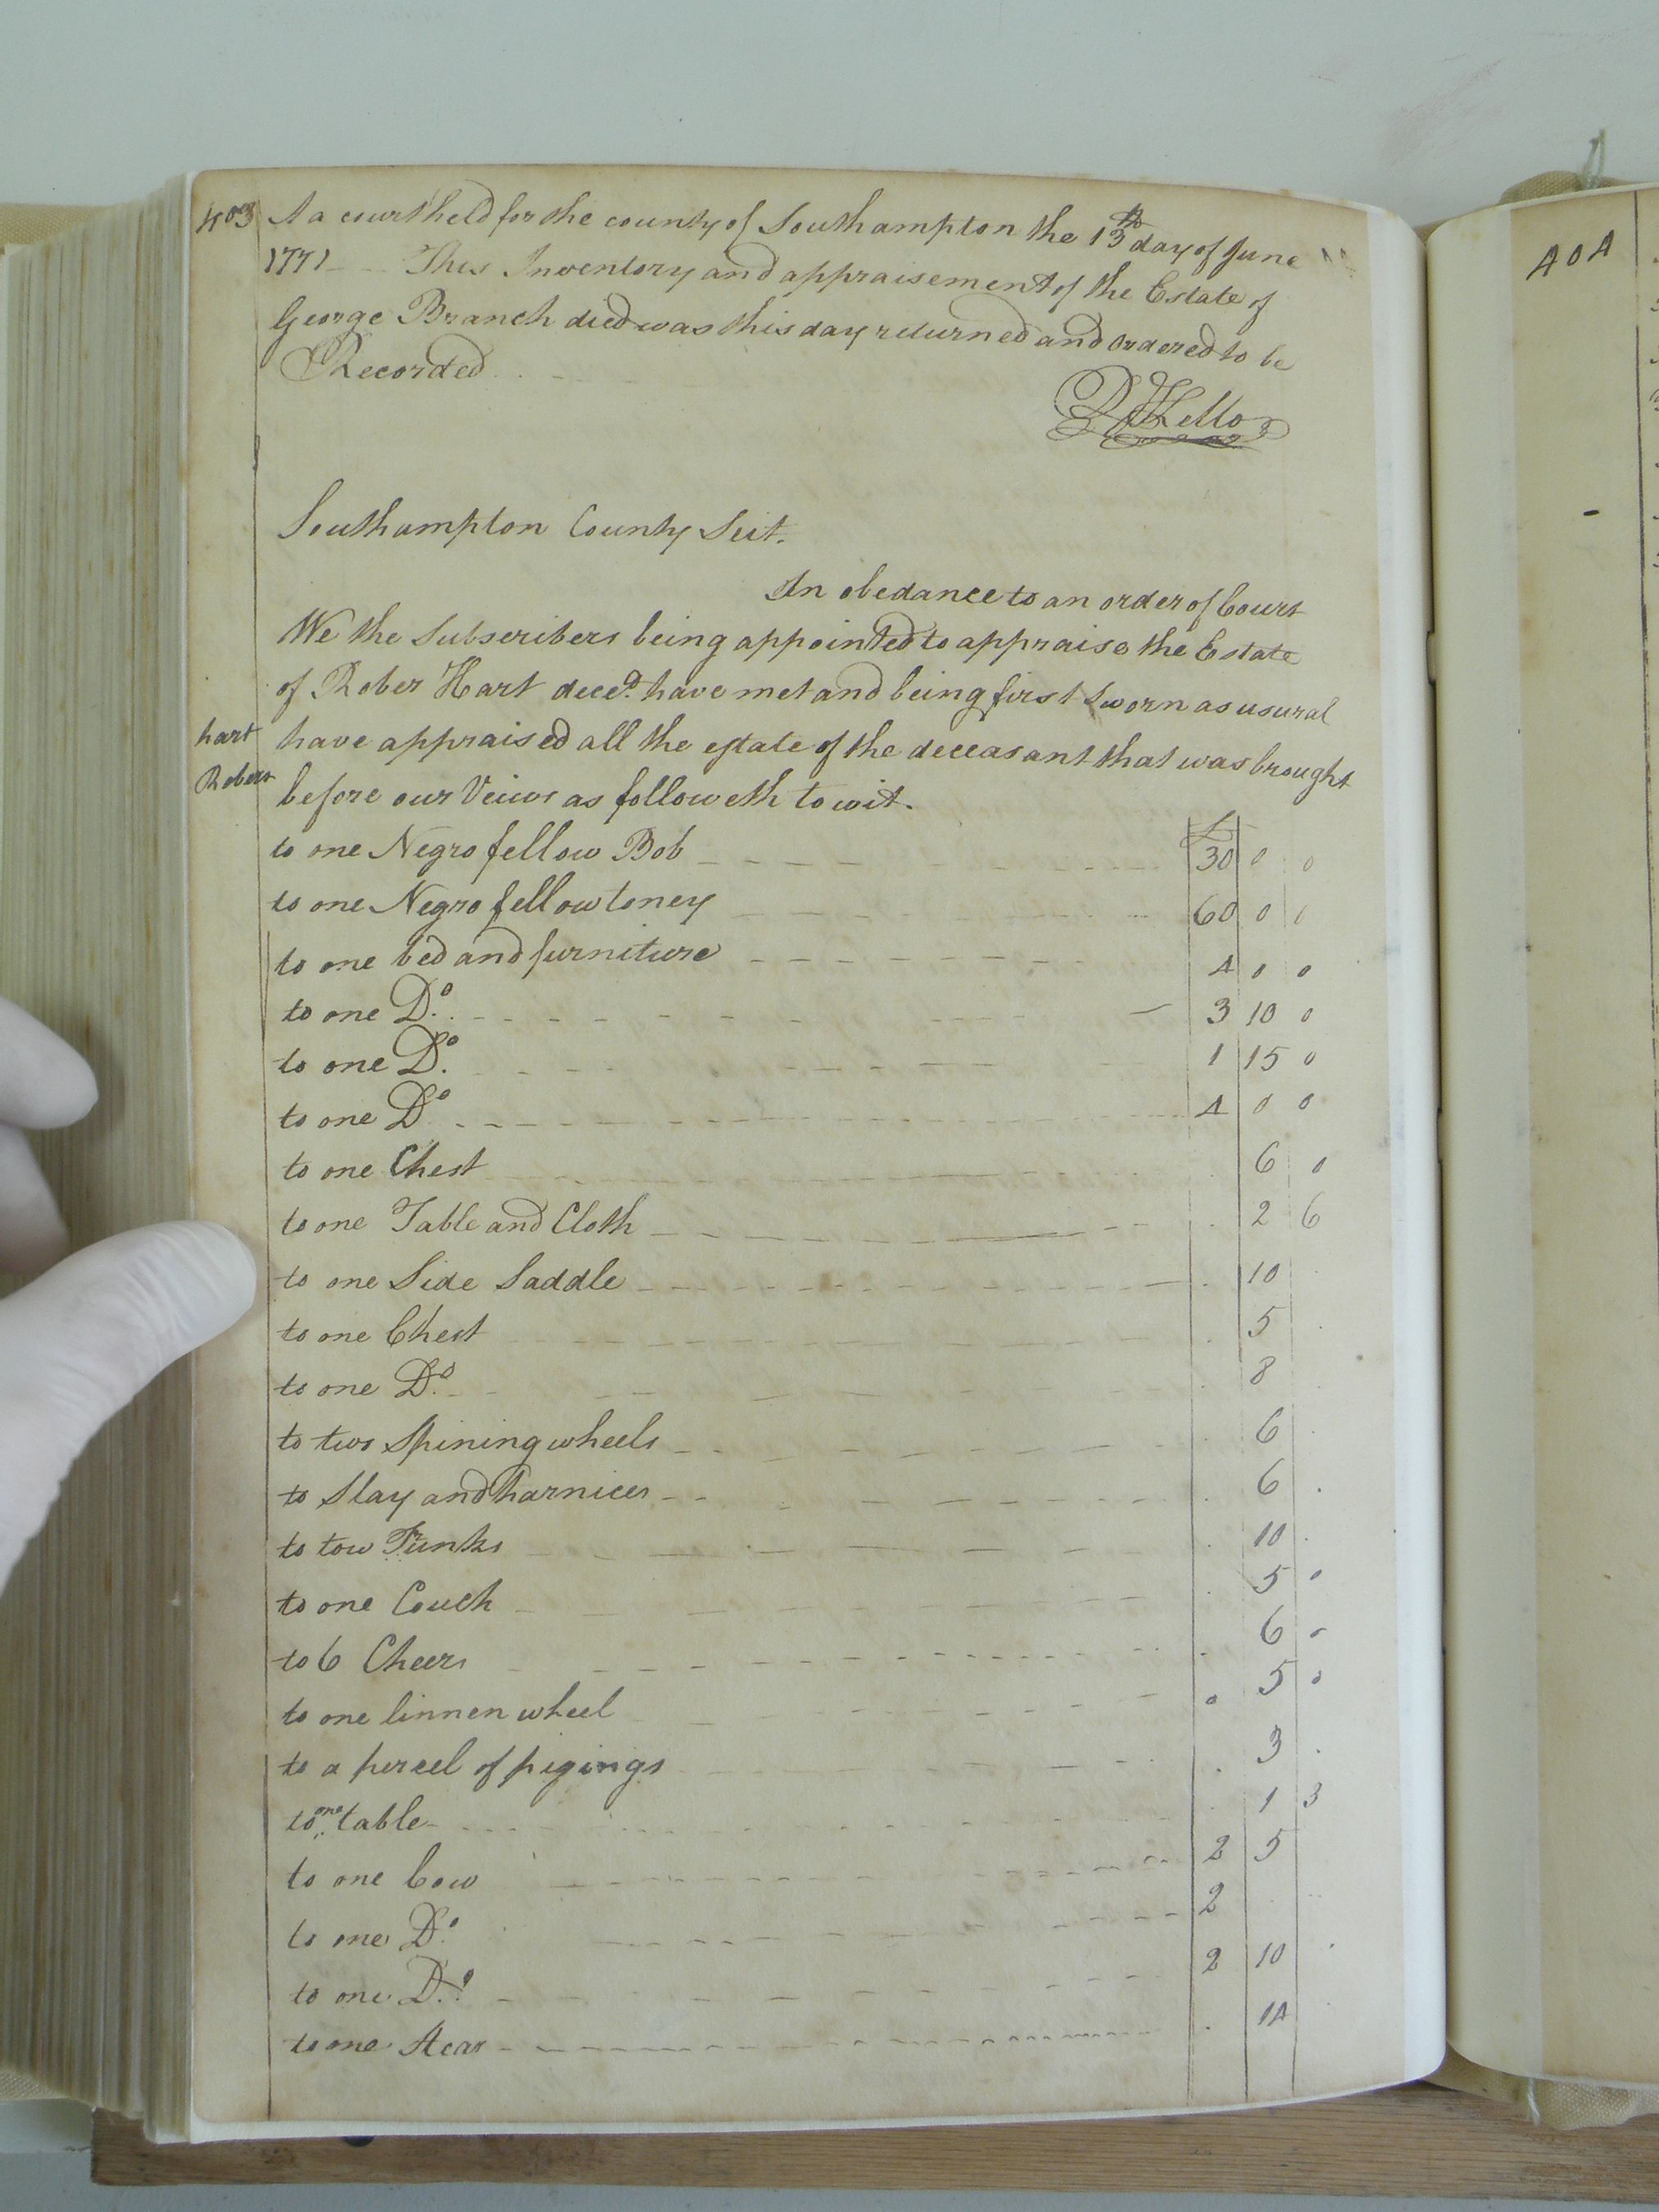 403 At a court held for the county of Southampton the 13th day of June
1771 This Inventory and appraisement of the Estate of
George Branch decd was this day returned and ordered to be
Recorded
R Kello
Southampton County Scit.
In obedance to an order of Court
We the Subscribers being appointed to appraise the Estate
of Rober Hart deced. have met and being first Sworn as usural
hart have appraised all the estate of the deceasant that was brought
Robert before our Veiws as followeth to wit.
£
to one Negro fellow Bob 30 0 0
to one Negro fellow toney 60 0 0
to one bed and furniture 4 0 0
to one Do. 3 10 0
to one Do. 1 15 0
to one Do 4 0 0
to one Chest 6 0
to one Table and Cloth 2 6
to one Side Saddle 10
to one Chest 5
to one Do. 8
to two Spining wheels 6
to Slay and harnices 6
to tow Trunks 10
to one Couch 5 0
to 6 Cheers 6 0
to one linnen wheel 0 5 0
to a percel of pigings 3
to one table 1 3
to one Cow 2 5
to one Do. 2
to one Do. 2 10
to one Stear 14
404